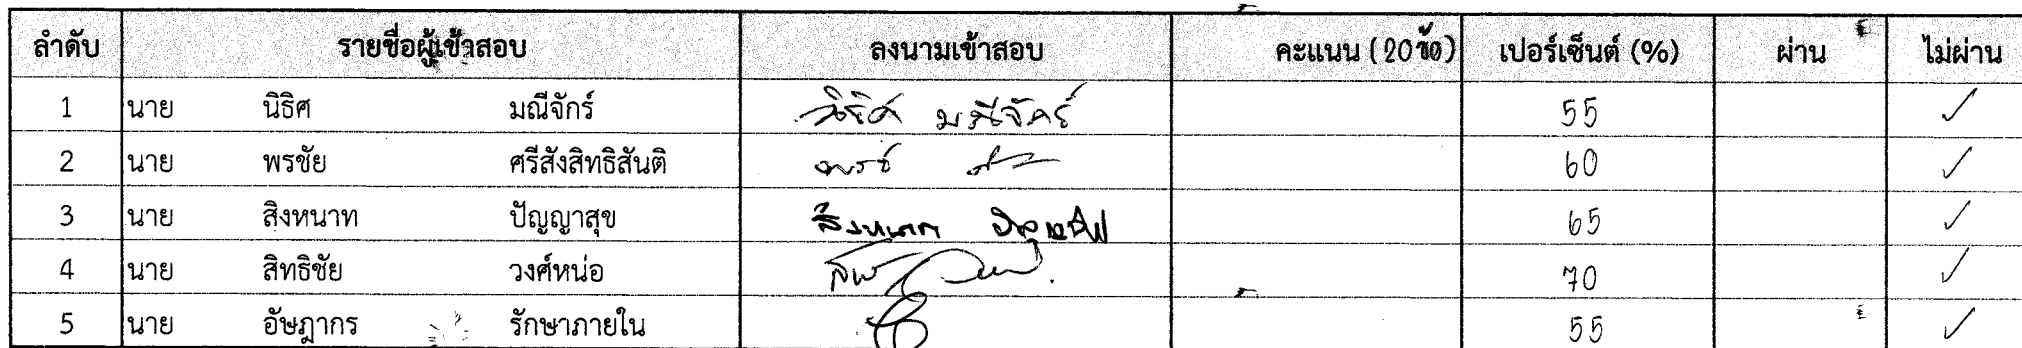 ลำดับ รายชื่อผู้เข้าสอบ ลงนามเข้าสอบ คะแนน (20ข้อ) เปอร์เซ็นต์ (%) ผ่าน ไม่ผ่าน
1 นาย นิธิศ มณีจักร์ นิธิศ มณีจักร์ 55 ✓
2 นาย พรชัย ศรีสังสิทธิสันติ 60 ✓
3 นาย สิงหนาท ปัญญาสุข สิงหนาท 65 ✓
4 นาย สิทธิชัย วงศ์หน่อ 70 ✓
5 นาย อัษฎากร รักษาภายใน 55 ✓